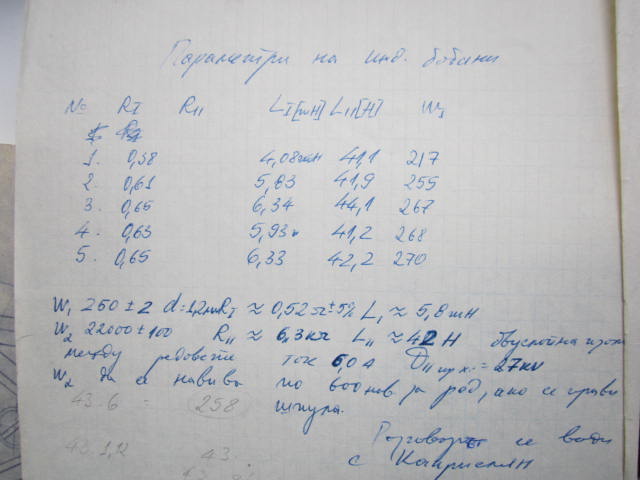 Параметри на инд. бобини
№ RI RII LI[mH] LII[H] WI
1. 0,58 4,08mH 41,1 217
2. 0,61 5,83 41,9 255
3. 0,65 6,34 44,1 267
4. 0,63 5,93 41,2 268
5. 0,65 6,33 42,2 270
W1 260 ± 2 d=1,2mm RI ≈ 0,52 Ω ± 5% LI ≈ 5,8 mH
W2 22000 ± 100 RII ≈ 6,3 kΩ LII ≈ 42 H двуслойна
между редовете ток 6,0 A = 27 kV
W2 да се навива по 600 нав. за ред, ако се прави
43.6 = 258 шпула.
43.1,2 43.
Разговорът се води
с